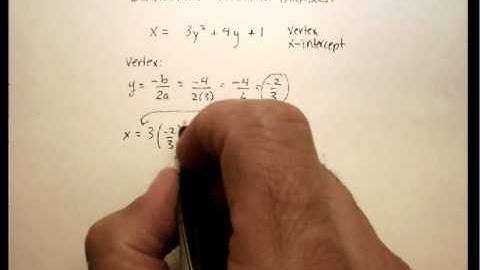 x = 3y² + 4y + 1 vertex
x-intercept
Vertex:
y = -b/2a = -4/2(3) = -4/6 = -2/3
x = 3(-2/3